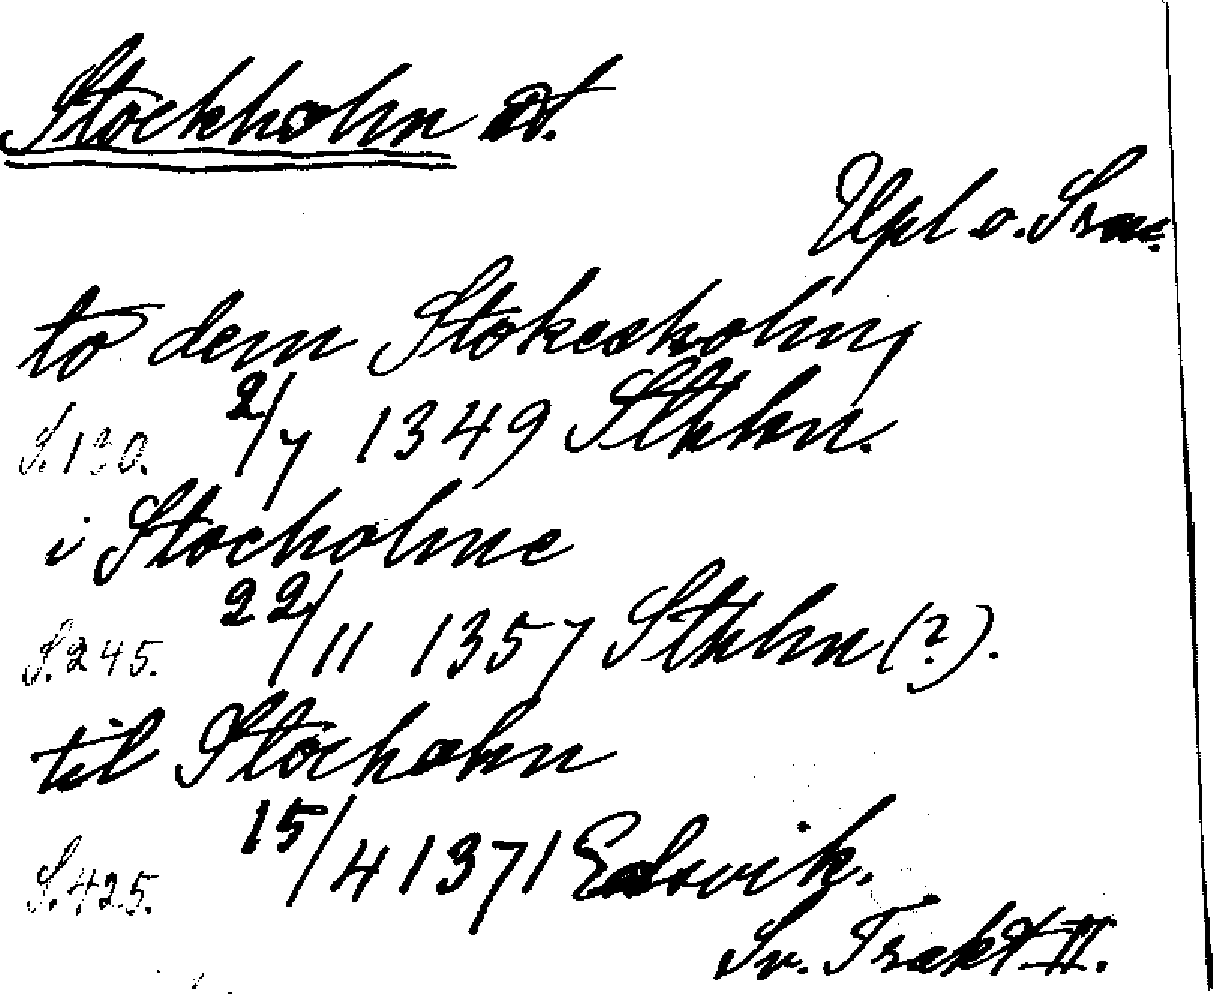 Stockholm st.
Upl. o. Srm.
to dem Stokesholm
S. 130. 2/7 1349 Sthlm.
i Stocholme
S. 245. 22/11 1357 Sthlm (?).
til Stocholm
S. 425. 15/4 1371 Edsvik.
Sv. Trakt II.